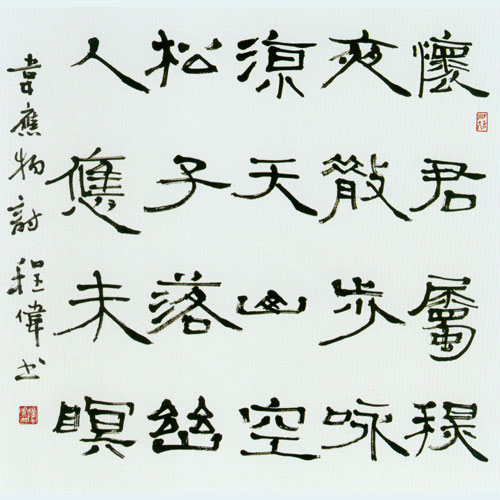 懷君屬秋
夜散步咏
涼天山空
松子落幽
人應未瞑
韋應物詩程偉书